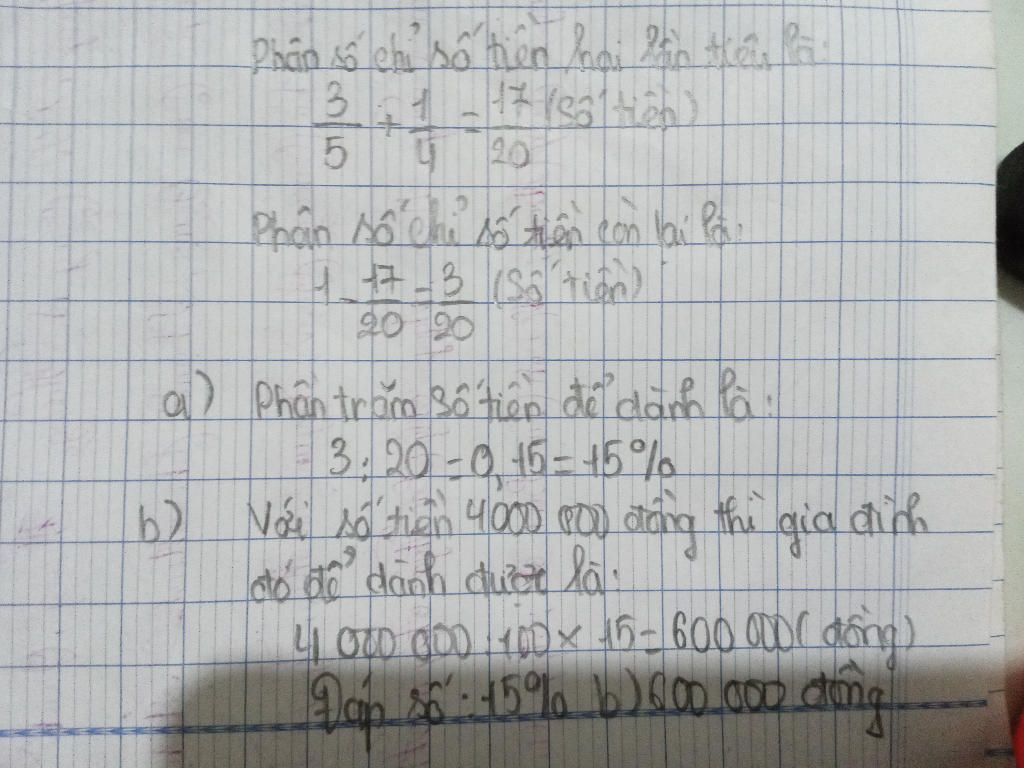 Phân số chỉ số tiền hai lần tiêu là:
3/5 + 1/4 = 17/20 (số tiền)
Phân số chỉ số tiền còn lại là:
1 - 17/20 = 3/20 (số tiền)
a) Phần trăm số tiền để dành là:
3 : 20 = 0,15 = 15%
b) Với số tiền 4 000 000 đồng thì gia đình
đó để dành được là:
4 000 000 : 100 x 15 = 600 000 (đồng)
Đáp số : 15% b) 600 000 đồng